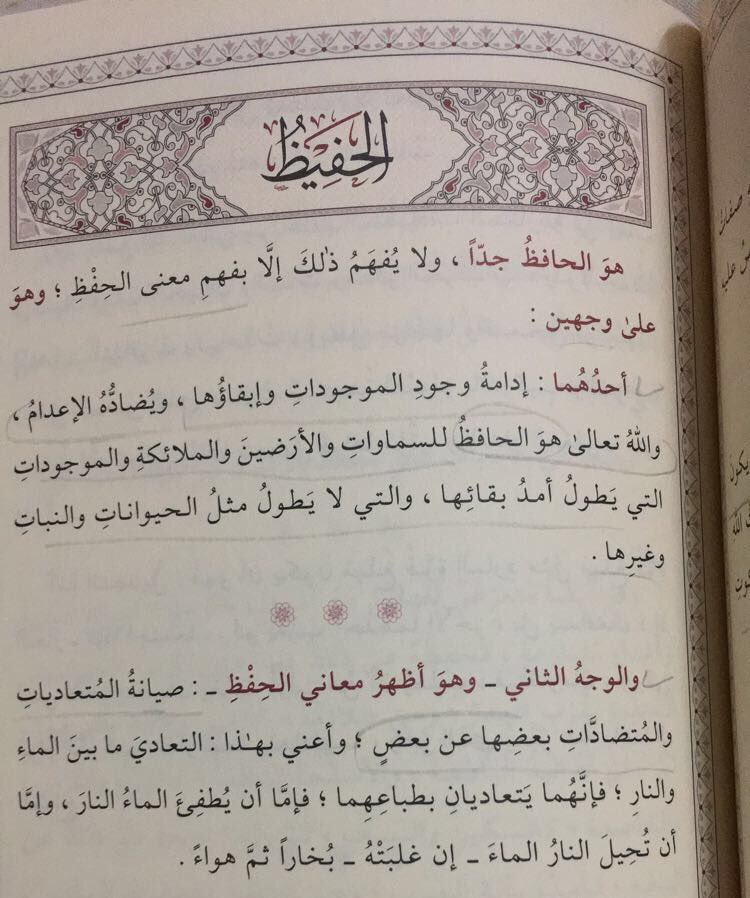 الحَفِيْظُ
هوَ الحافظُ جدّاً ، ولا يُفهَمُ ذٰلكَ إلَّا بفهمِ معنى الحِفْظِ ؛ وهوَ
علىٰ وجهين :
أحدُهُما : إدامةُ وجودِ الموجوداتِ وإبقاؤُها ، ويُضادُّهُ الإعدامُ ،
واللهُ تعالىٰ هوَ الحافظُ للسماواتِ والأرَضينَ والملائكةِ والموجوداتِ
التي يَطولُ أمدُ بقائِها ، والتي لا يَطولُ مثلُ الحيواناتِ والنباتِ
وغيرِها .
والوجهُ الثاني ـ وهوَ أظهرُ معاني الحِفْظِ ـ : صيانةُ المُتعادياتِ
والمُتضادَّاتِ بعضِها عن بعضٍ ؛ وأعني بهـٰذا : التعاديَ ما بينَ الماءِ
والنارِ ؛ فإنَّهُما يَتعاديانِ بطباعِهِما ؛ فإمَّا أن يُطفِئَ الماءُ النارَ ، وإمَّا
أن تُحِيلَ النارُ الماءَ ـ إن غلبَتْهُ ـ بُخاراً ثمَّ هواءً .